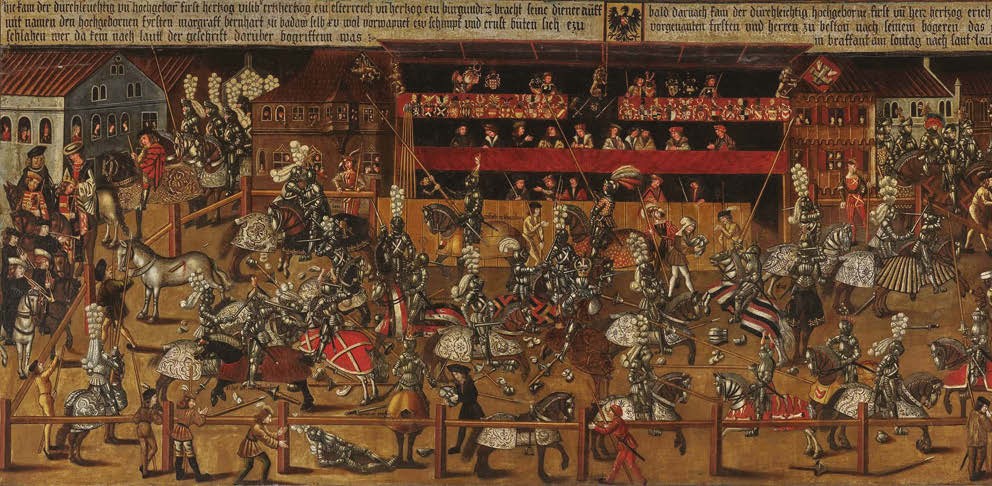 kam der durchleuchtig vn̄ hochgebor̄ fürst hertzog vilib ertzhertzog czu osterreich vn̄ hertzog czu burgund z bracht seine diener auff
mit namen den hochgebornen fyrsten margraff bernhart zu badaw selb xv wol vorwapnet czu schimpf und ernst biten sich czu
schlahen wer da kein nach lautt der geschrift darüber bogriffenn was
bald darnach kam der durchleuchtig hochgeborne fürst vn̄ herr hertzog erich
borgenanten fürsten und herren zu beston nach seinem bogeren das
in braffant am sontag nach sant